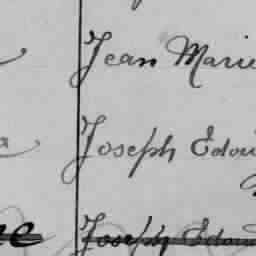 Jean Marie
Joseph Edou
Joseph Edou